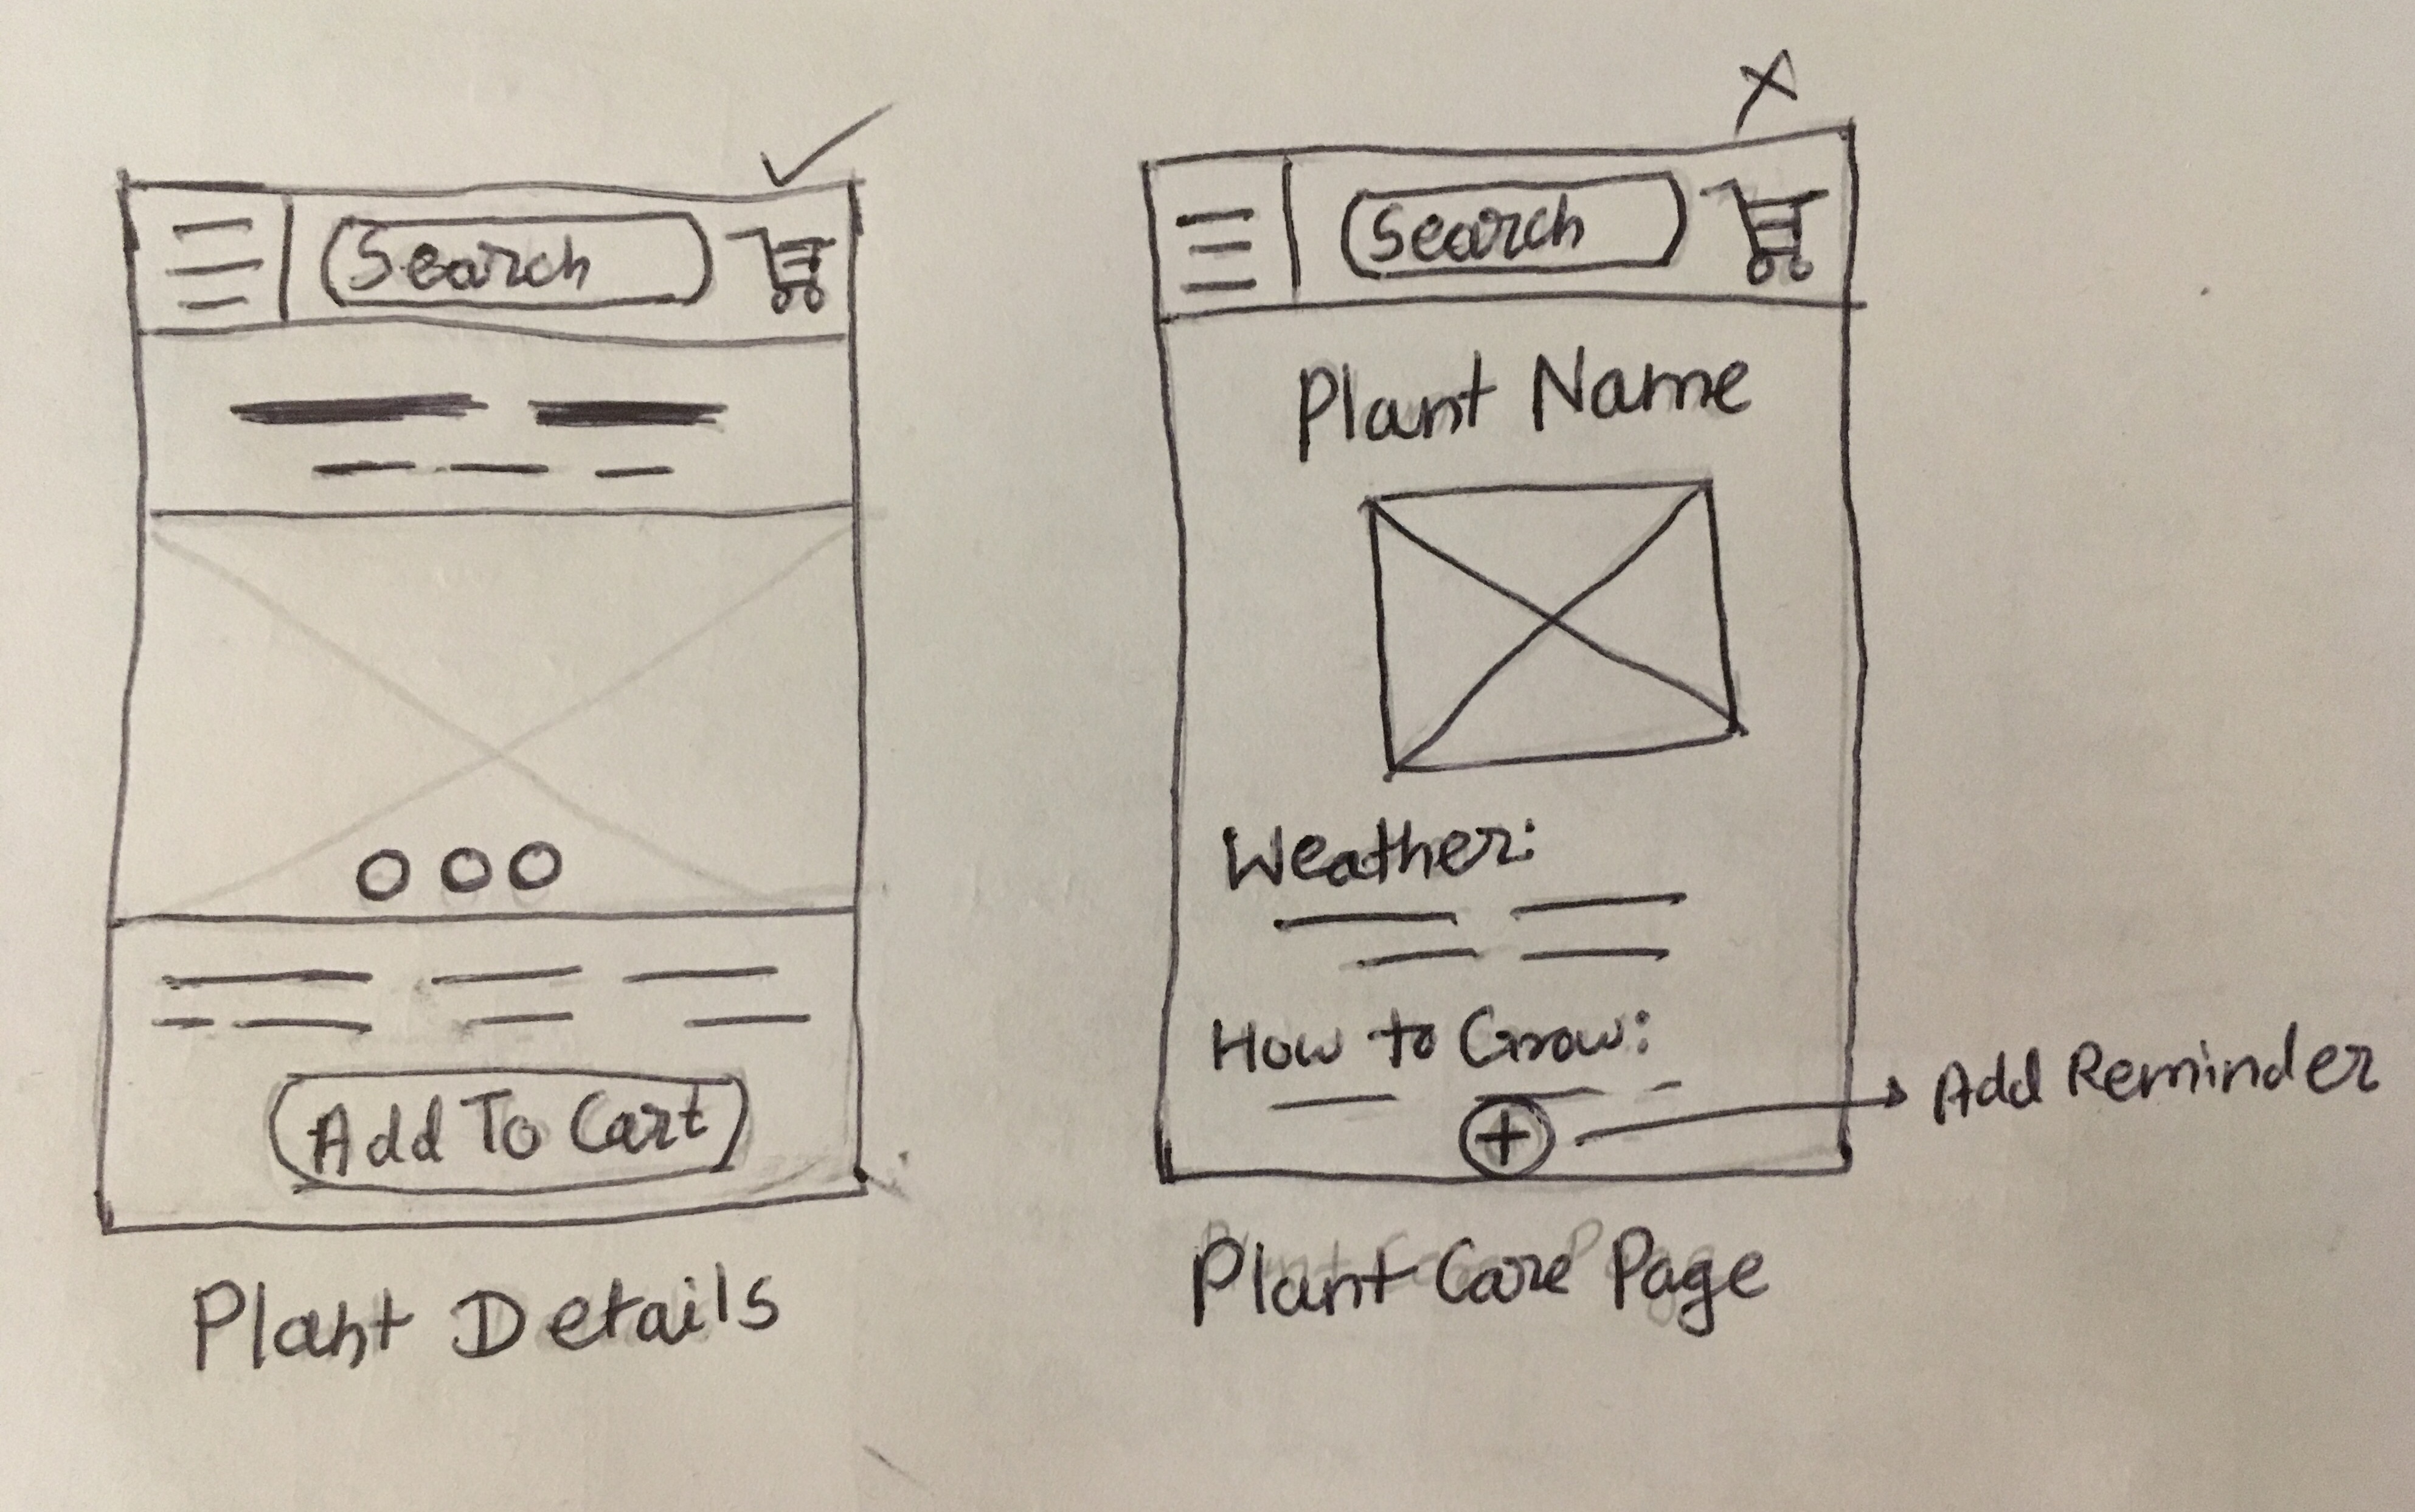 Search
Add To Cart
Plant Details
Search
Plant Name
Weather:
How to Grow:
Add Reminder
Plant Care Page